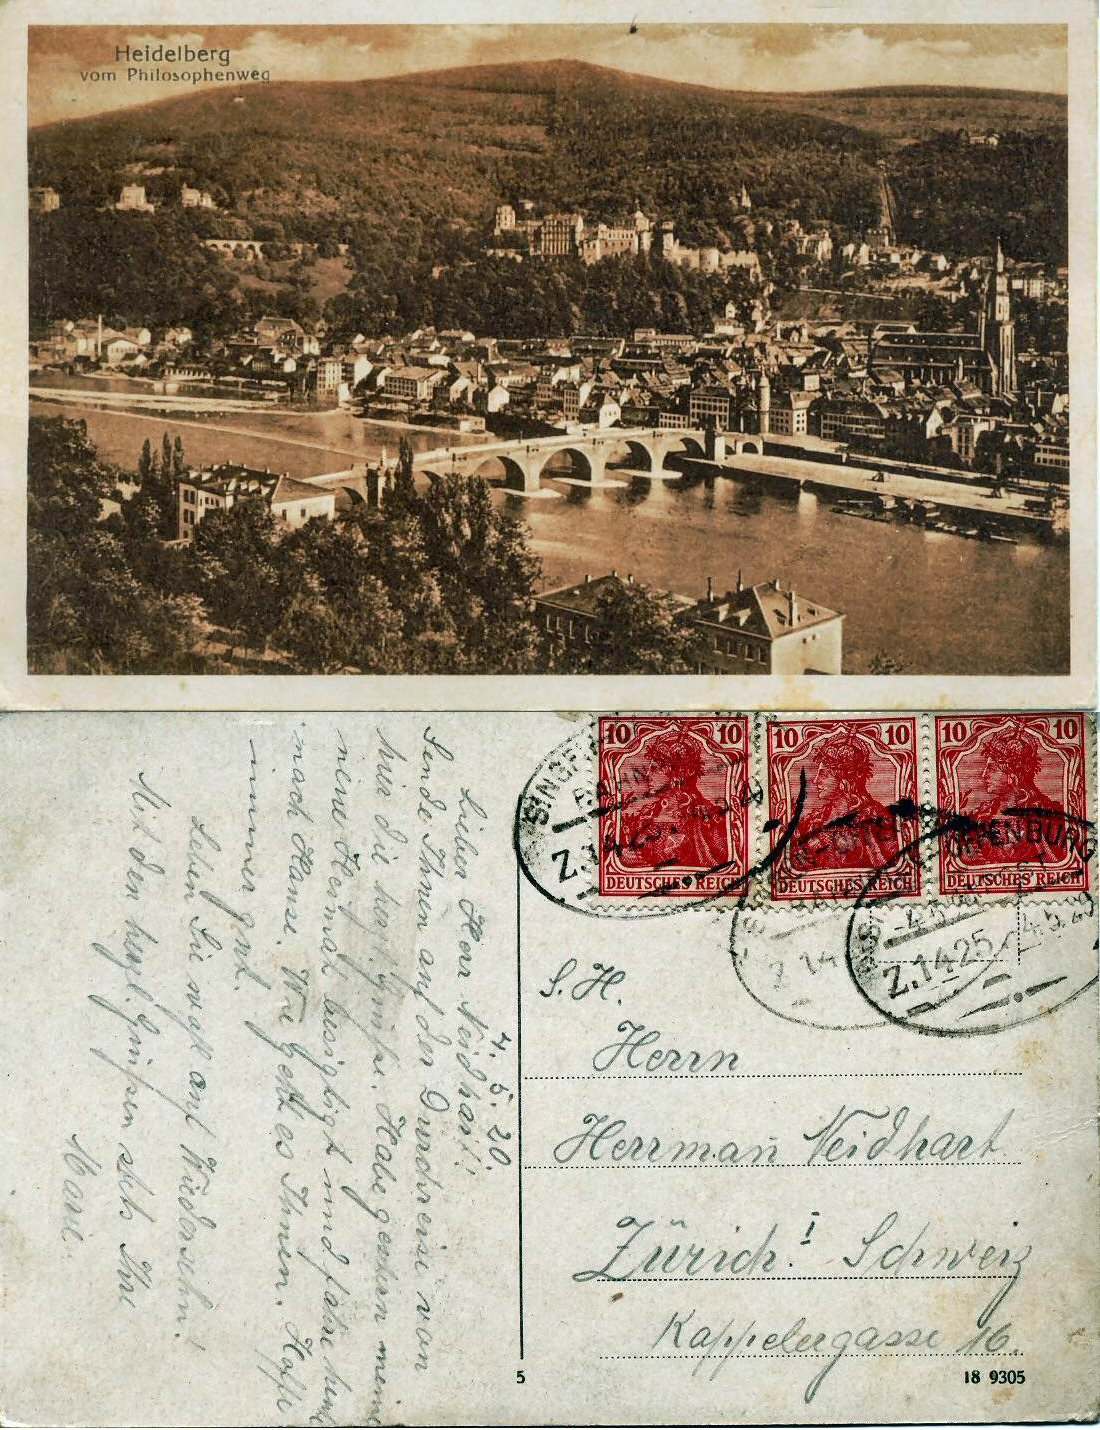 Heidelberg
vom Philosophenweg
10 10
DEUTSCHES REICH
10 10
DEUTSCHES REICH
10 10
DEUTSCHES REICH
SINGEN
BAHN
Z.1425
OFFENBURG
-4.5.20
Z.1425
4.5.20.
Lieber Herr Neidhart!
Sende Ihnen auf der Durchreise von
hier die herzl. Grüße. Habe gestern meine
neue Heimat besigtigt und fahre heute
nach Hause. Wie geht es Ihnen. Hoffe
immer gut.
Leben Sie wohl auf Wiedersehn!
Mit den herzl. Grüßen stets Ihre
Marie.
S. H.
Herrn
Herrman Neidhart
Zürich I Schweiz
Kappelergasse 16.
5
18 9305